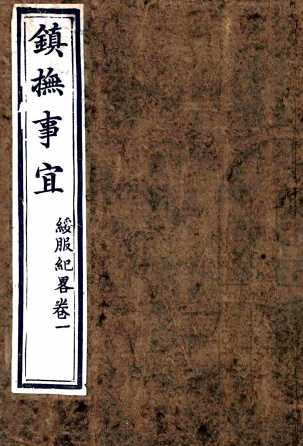 鎮撫事宜
綏服紀畧卷一